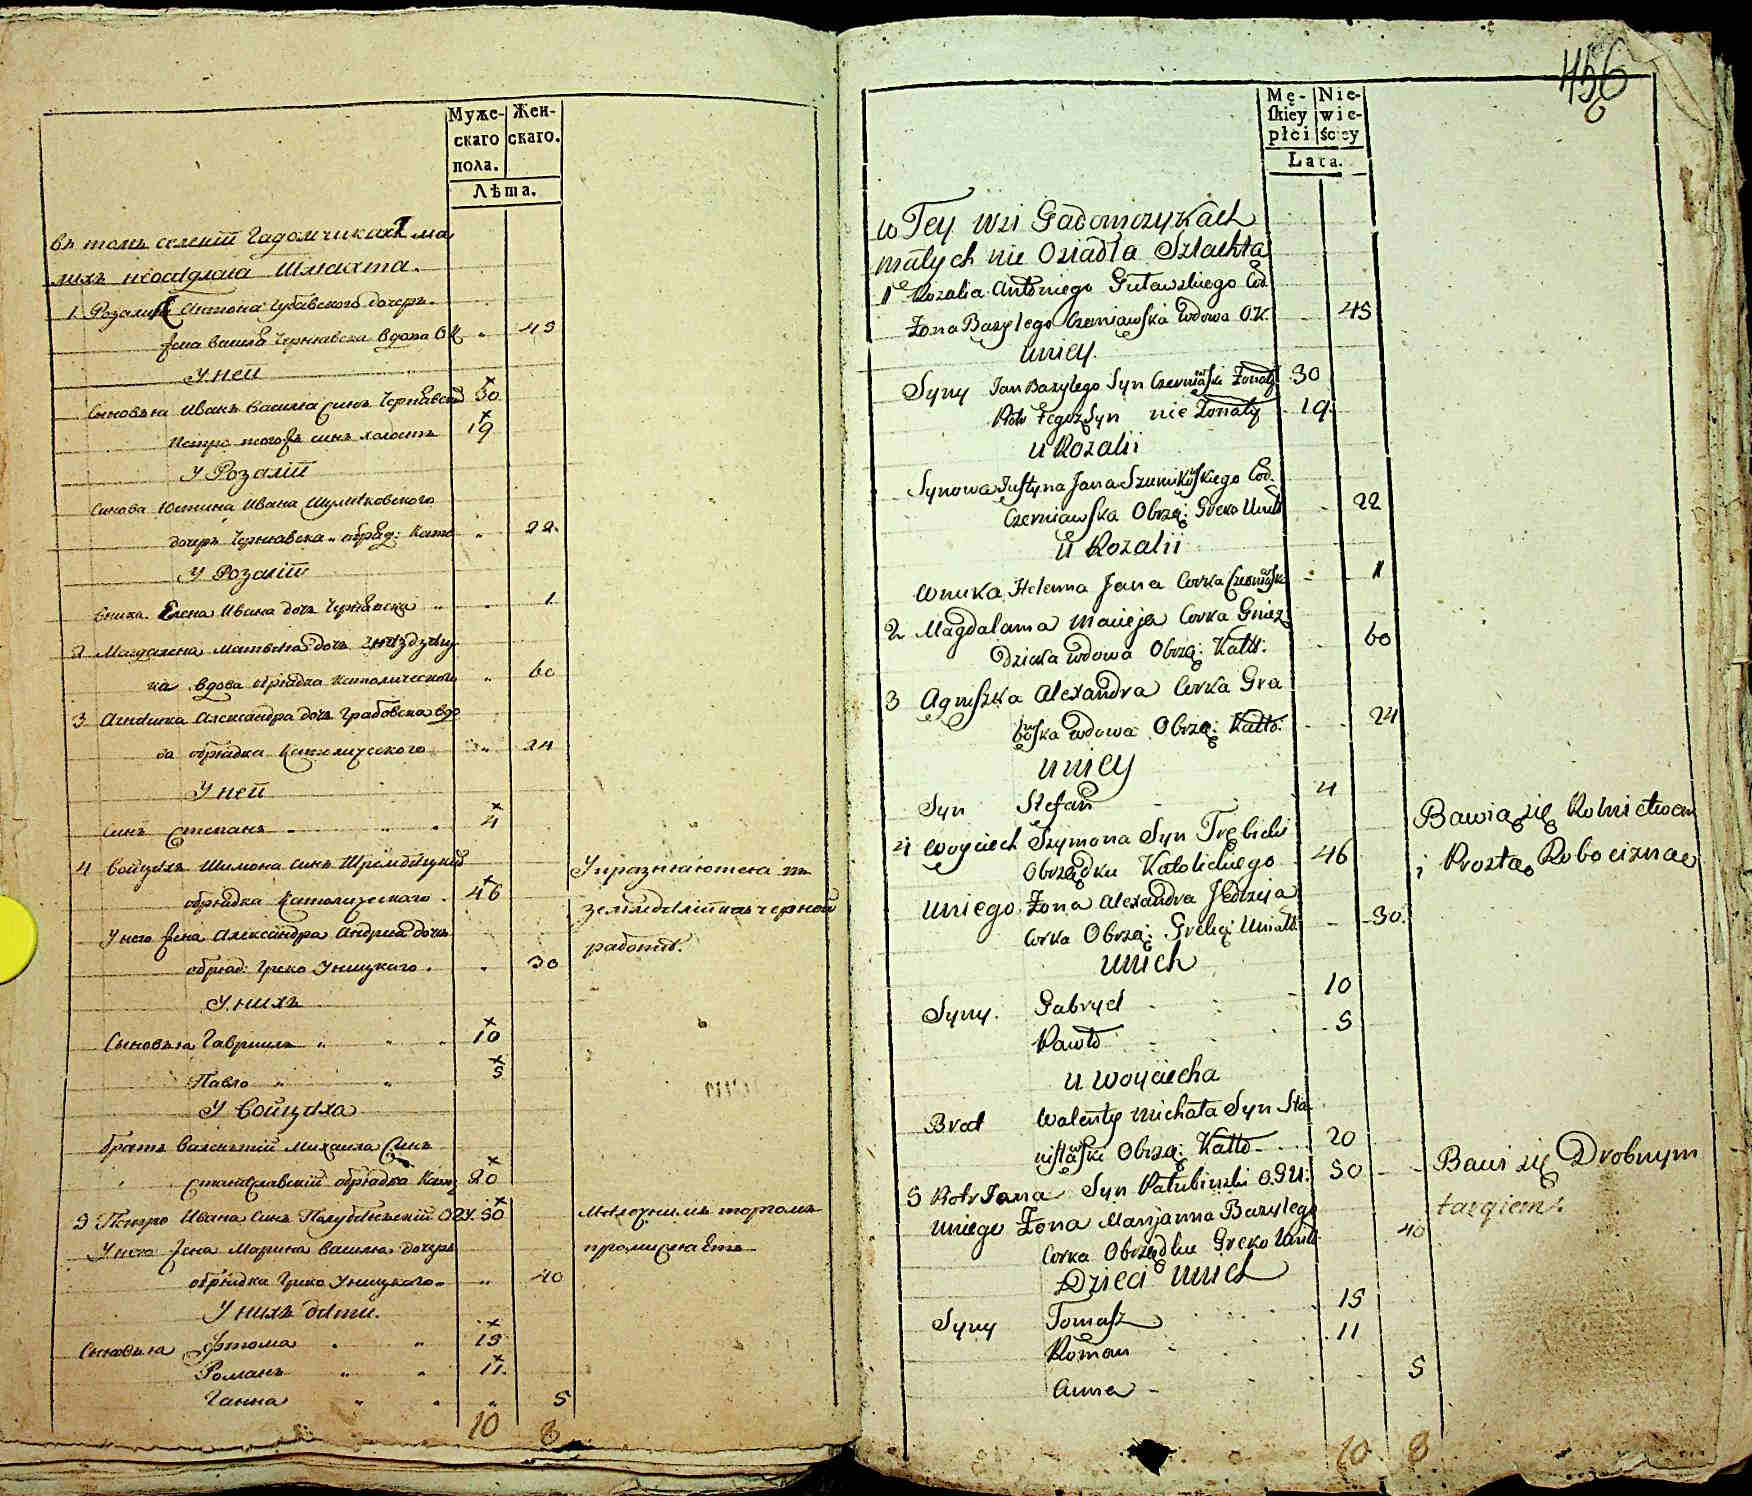 Муже-
скаго
пола.
Жен-
скаго.
Лѣта.
въ томъ селеніи Гадомчикахъ ма
лихъ неоседлая Шляхта.
1 Розалия Антона Гутавского дочерь
жена Василя Чернявска вдова О К „ 45
У ней
Сыновья Иванъ Василя синъ Чернявский 30
Петро того жъ синъ холостъ 19
У Розаліи
Синова Юстина Ивана Шумковского
дочерь Чернявска обряд: Като „ 22.
У Розаліи
внука Елена Ивана дочь Чернявска „ „ 1
2 Магдалена Матвея дочь Гнездзец
ка вдова обрядка католического „ 60
3 Агнешка Александра дочь Грабовска вдо
ва обрядка Католического „ 24
У ней
синъ Степанъ „ „ 4
4 Войцехъ Шимона синъ Трембицкий
обрядка Католического 46
У него жена Александра Андрея дочь
обряд: Греко Уницкаго. „ 30
Упражняются въ
земледелии и въ черной
работе.
У нихъ
Сыновья Гавриилъ „ „ „ 10
Павло „ „ 5
У Войцеха
братъ Валентий Михаила Синъ
Станиславский обрядка Като 20
5 Петро Ивана Синъ Палубинский О Г У. 50
У него жена Марина Василя дочерь
обрядка Греко Уницкого „ 40
Мелочнымъ торгомъ
промисляетъ
У нихъ дети.
Сыновья Фтома „ „ 15
Романъ „ „ 11.
Ганна „ „ „ 5
10 8
456
6
Mę-
skiey
płci
Nie-
wie-
ściey
Lata.
w Tey wsi Gadomczykach
małych nie Osiadła Szlachta
1 Rozalia Antoniego Gutawskiego Cor.
Żona Bazylego Czerniawska wdowa O.K. 45
uniey.
Syny Jan Bazylego Syn Czerniawski Żonaty 30
Piotr Tegoż Syn nie Żonaty 19.
u Rozalii
Synowa Justyna Jana Szumkowskiego Cor.
Czerniawska Obrzą: Greko Unit 22
u Rozalii
Wnuka Helenna Jana Corka Czerniawska 1
2 Magdalana Macieja Corka Gniez
dzicka wdowa Obrzą: Kato. 60
3 Agniszka Alexandra Corka Gra
bowska wdowa Obrzą: Kato. 24
uniey
Syn Stefan 4
4 Woyciech Szymona Syn Trębicki
Obrządku Katolickiego 46
uniego Żona Alexandra Jędrzeja
Corka Obrzą: Grekę: Uniatt. 30.
Bawią się Rolnictwem
i Prostą Robocizną
unich
Syny. Gabryel 10
Pawło 5
u Woyciecha
Brat Walenty Michała Syn Sta-
nisławski Obrzą: Kato 20
5 Piotr Jana Syn Pałubinski O.G.U. 50
uniego Żona Maryanna Bazylego
Corka Obrządku Greko Unit. 40
Bawi się Drobnym
targiem.
Dzieci unich
Syny Tomasz 15
Roman 11
Anna 5
10 8